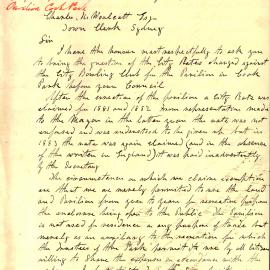 Pavilion Cook Park
Charles H Woolcott Esq
Town Clerk Sydney
Sir
I have the honour most respectfully to ask you
to bring the question of the City Rates charged against
the City Bowling Club for the Pavilion in Cook
Park before your Council.
After the erection of the pavilion a City Rate was
claimed for 1881 and 1882 from representation made
to the Mayor in the latter year the rate was not
enforced and was understood to be given up but in
1883 the rate was again claimed (and in the absence
of the writer in England) it was paid inadvertently
by the Secretary
The circumstances on which we claim exemption
are that we are merely permitted to use the land
and Pavilion from year to year for recreation purposes
the enclosure being open to the Public. The Pavilion
is not used for residence or any purpose of trade but
merely as an auxiliary to the recreation for which
the trustees of the Park permit its use by all citizens
willing to share the expenses in accordance with the